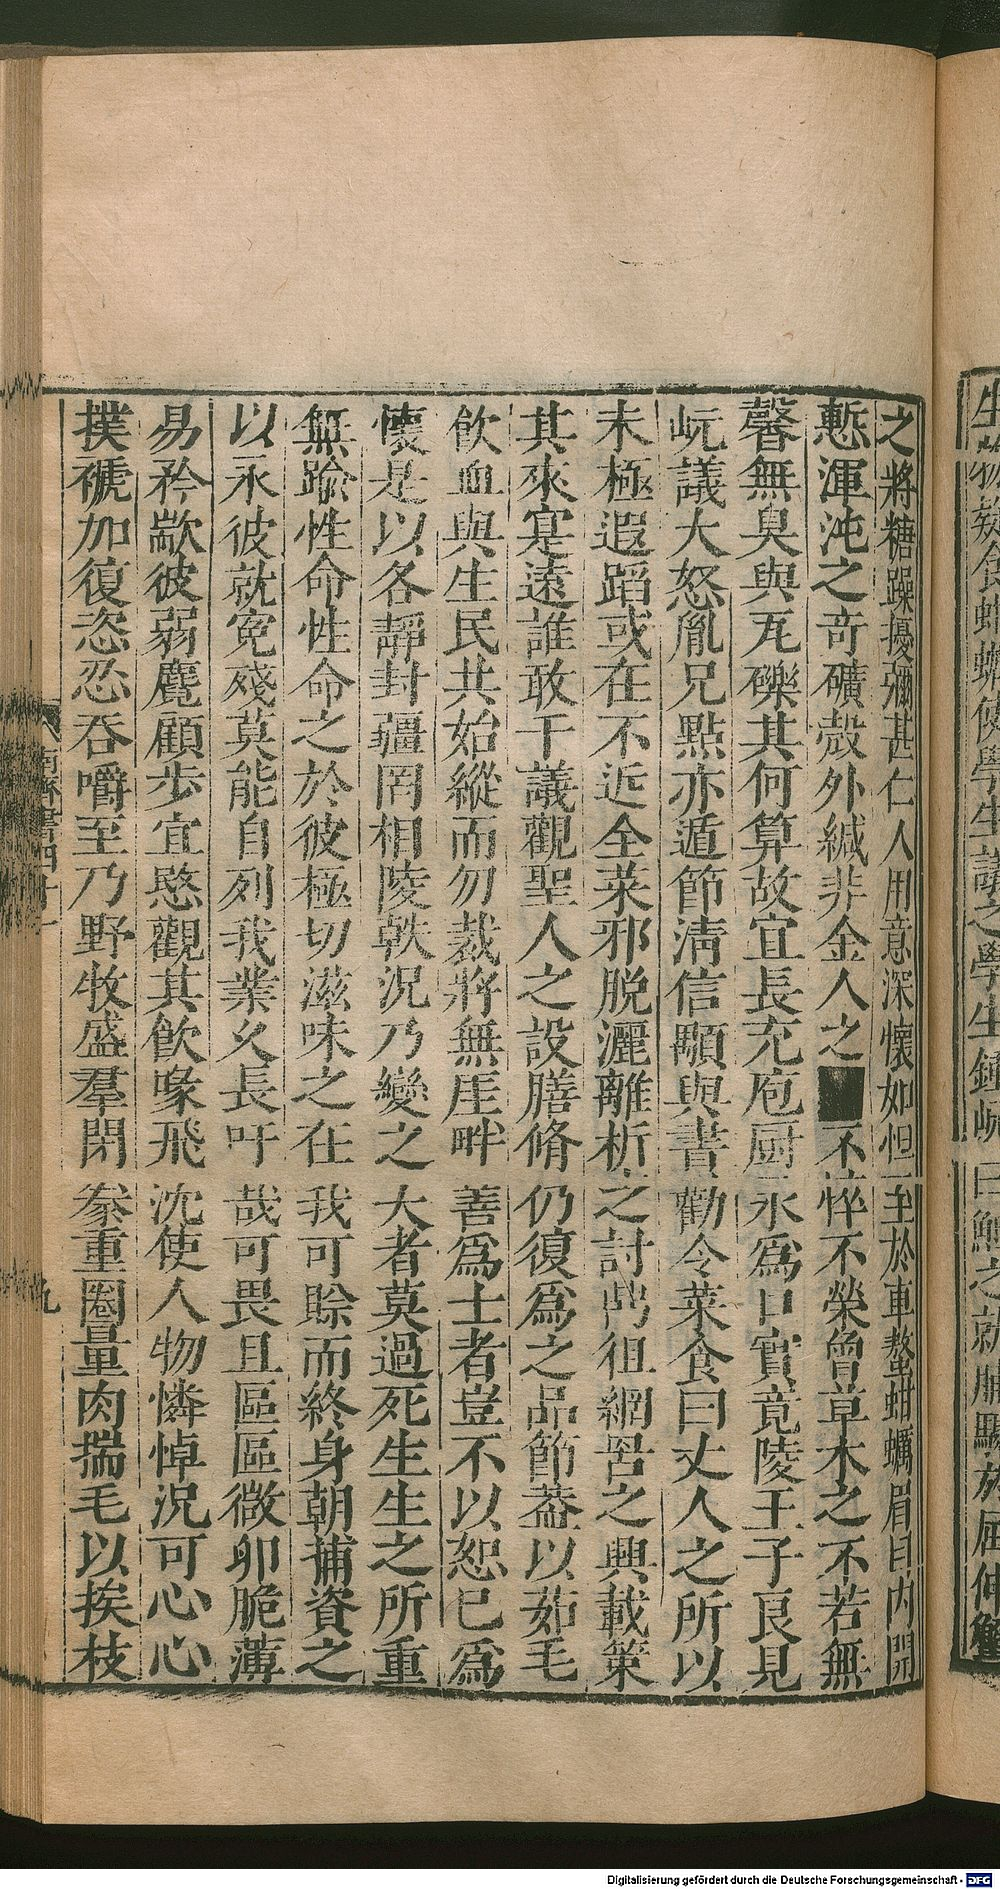 生物疑食蚶蠣使學生議之學生鍾岏曰䱇之就脯驟於屈伸蟹
之將糖躁擾彌甚仁人用意深懷如怛至於車螯蚶蠣眉目內闕
慙渾沌之奇礦殼外緘非金人之■不悴不榮曾草木之不若無
馨無臭與瓦礫其何算故宜長充庖厨永爲口實竟陵王子良見
岏議大怒胤兄點亦遁節清信顒與書勸令菜食曰丈人之所以
未極遐蹈或在不近全菜邪脫灑離析之討鼎俎網罟之興載策
其來寔遠誰敢干議觀聖人之設膳脩仍復爲之品節葢以茹毛
飲血與生民共始縱而勿裁將無厓畔善爲士者豈不以恕已爲
懷是以各靜封疆罔相陵軼況乃變之大者莫過死生生之所重
無踰性命性命之於彼極切滋味之在我可賒而終身朝晡資之
以永彼就寃殘莫能自列我業久長吁哉可畏且區區微卵脆薄
易矜歂彼弱麑顧步宜愍觀其飲喙飛沈使人物憐悼況可心心
撲褫加復恣忍吞嚼至乃野牧盛羣閉豢重圈量肉揣毛以挨枝
南齊書四十一
九
Digitalisierung gefördert durch die Deutsche Forschungsgemeinschaft - DFG